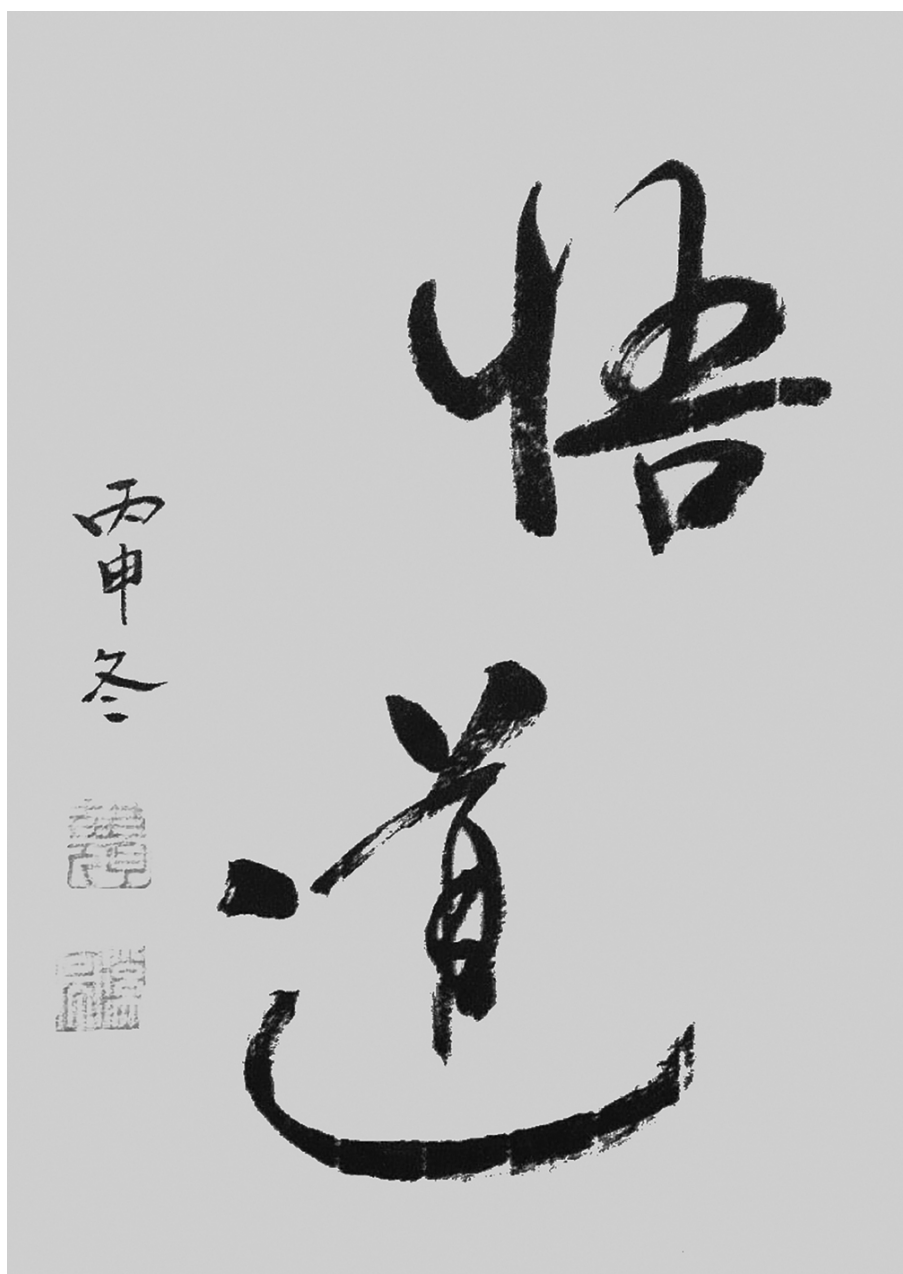 悟道
丙申冬